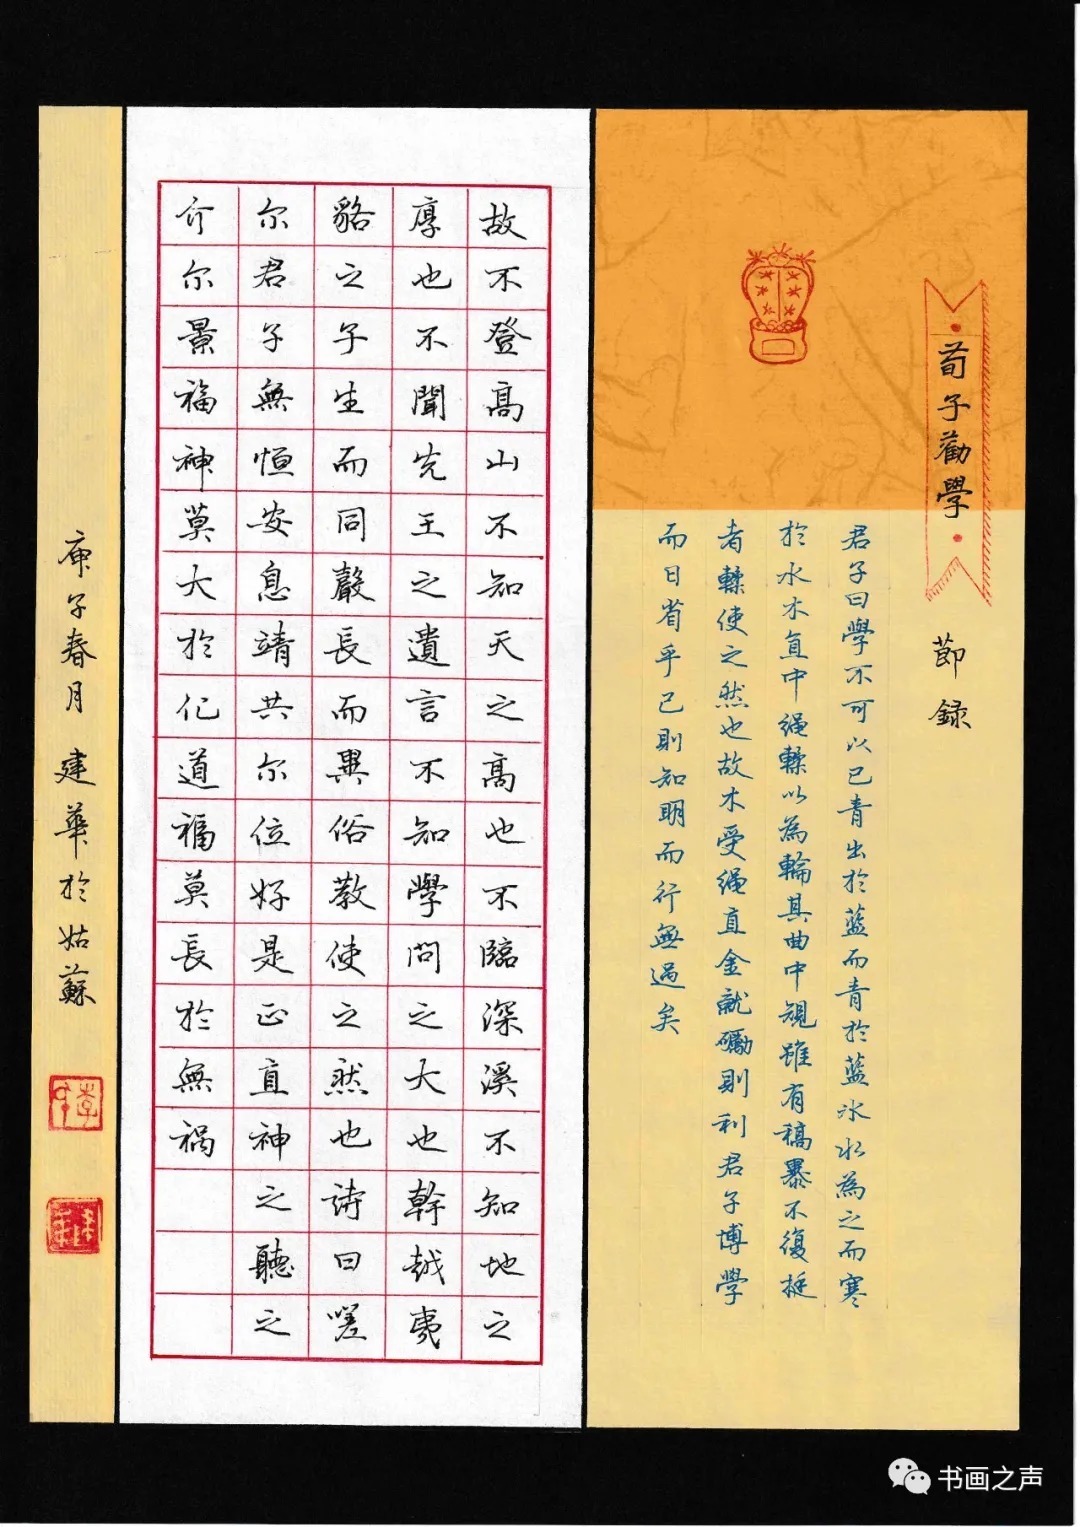 荀子勸學
節録
君子曰學不可以已青出於藍而青於藍冰水為之而寒
於水木直中繩輮以為輪其曲中規雖有槁暴不復挺
者輮使之然也故木受繩直金就礪則利君子博學
而日省乎己則知明而行無過矣
故不登高山不知天之高也不臨深溪不知地之
厚也不聞先王之遺言不知學問之大也幹越夷
貉之子生而同聲長而異俗教使之然也詩曰嗟
尔君子無恒安息靖共尔位好是正直神之聽之
介尔景福神莫大於化道福莫長於無禍
庚子春月 建華於姑蘇
书画之声